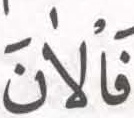 فَالْاٰنَ